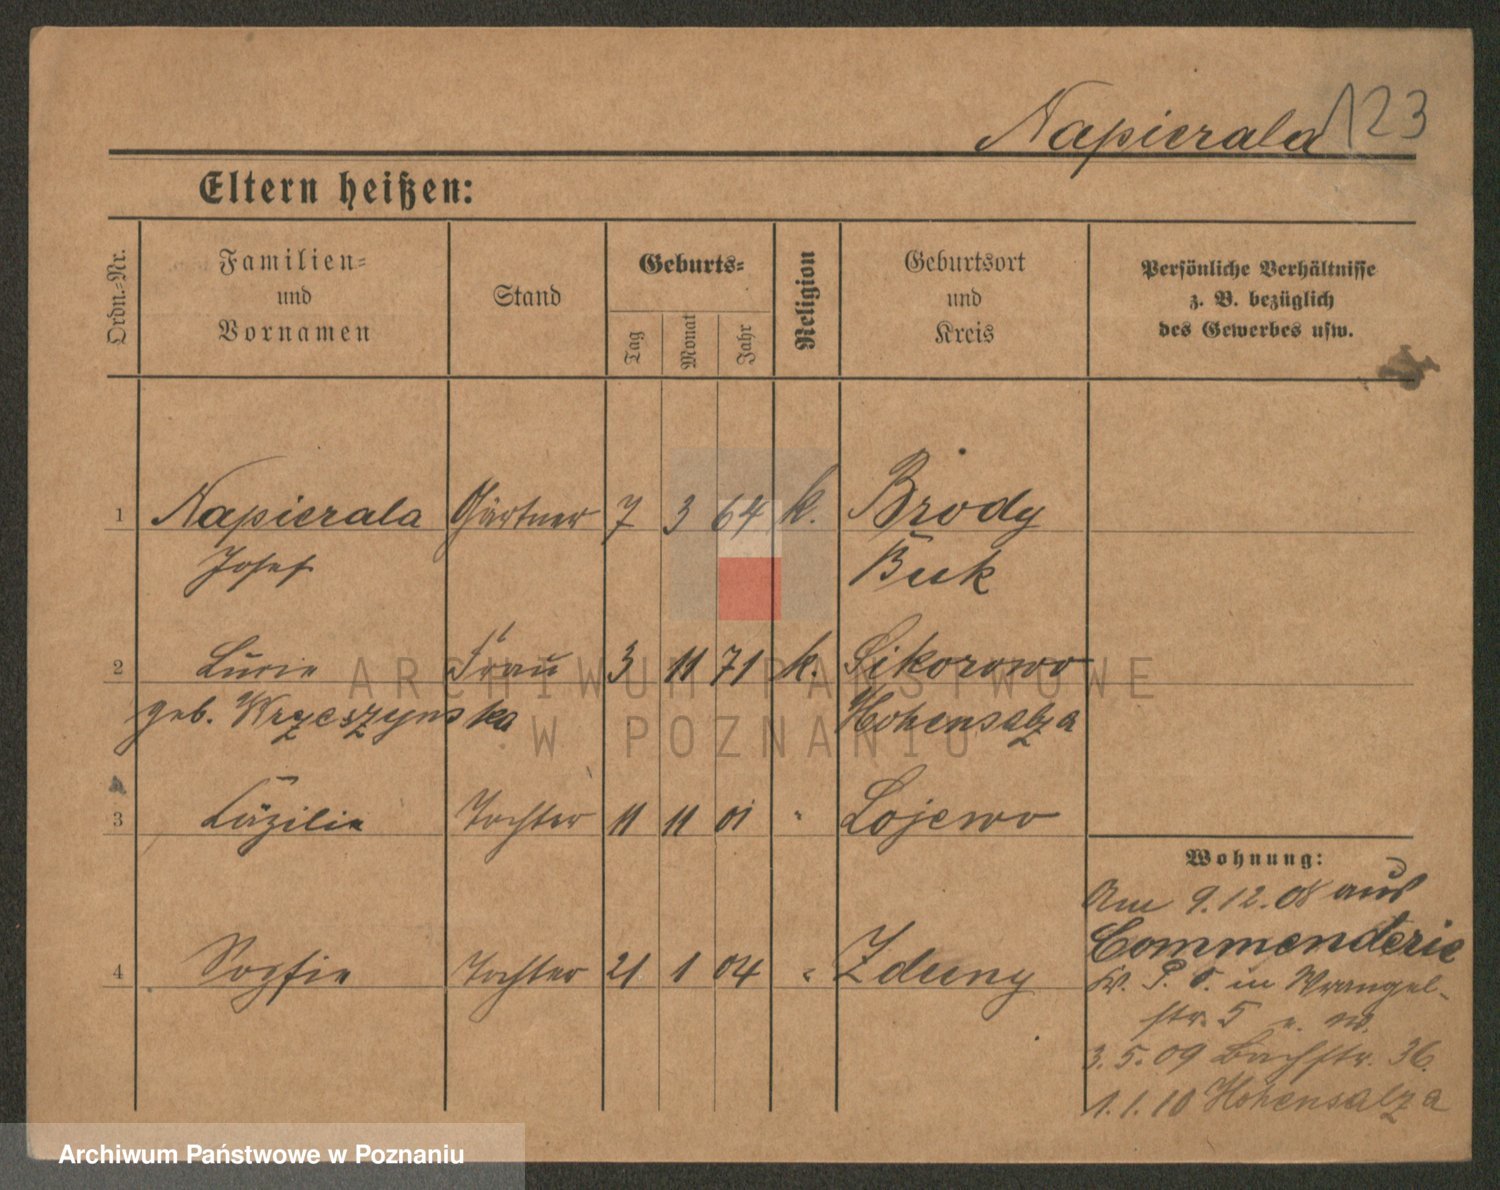 Napierala 123
Eltern heißen:
Ordn.-Nr.
Familien-
und
Vornamen
Stand
Geburts-
Tag
Monat
Jahr
Religion
Geburtsort
und
Kreis
Persönliche Verhältnisse
z. B. bezüglich
des Gewerbes usw.
1 Napierala Gärtner 7 3 64 k. Brody
Josef Buk
2 Lucie Frau 3 11 71 k. Sikorowo
geb. Wrzeszynska Hohensalza
3 Cäzilie Tochter 11 11 01 " Lojewo
Wohnung:
Am 9.12.08 aus
Commenderie
4 Sophie Tochter 21 1 04 " Zduny
Kr. P. O. in Wrangel-
str. 5
3.5.09 Bachstr. 36.
1.1.10 Hohensalza
ARCHIWUM PAŃSTWOWE
W POZNANIU
Archiwum Państwowe w Poznaniu